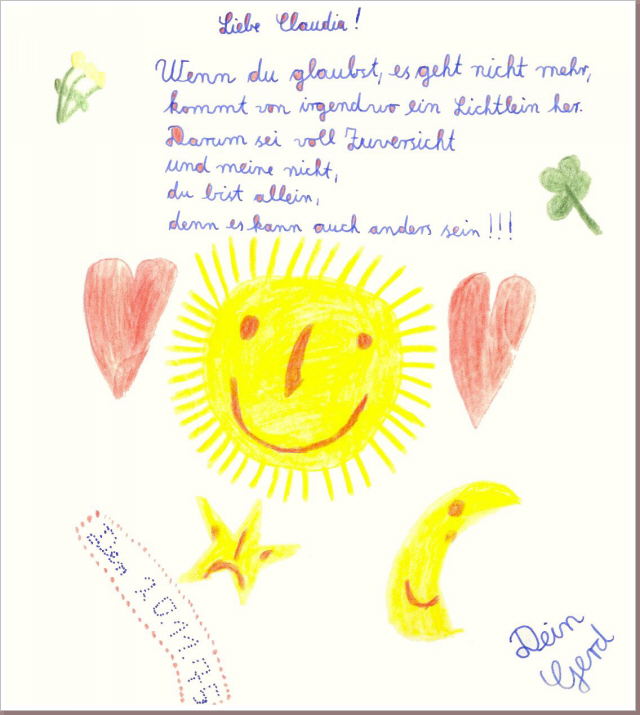 Liebe Claudia!
Wenn du glaubst, es geht nicht mehr,
kommt von irgendwo ein Lichtlein her.
Darum sei voll Zuversicht
und meine nicht,
du bist allein,
denn es kann auch anders sein!!!
Den 20.11.75
Dein
Gerd